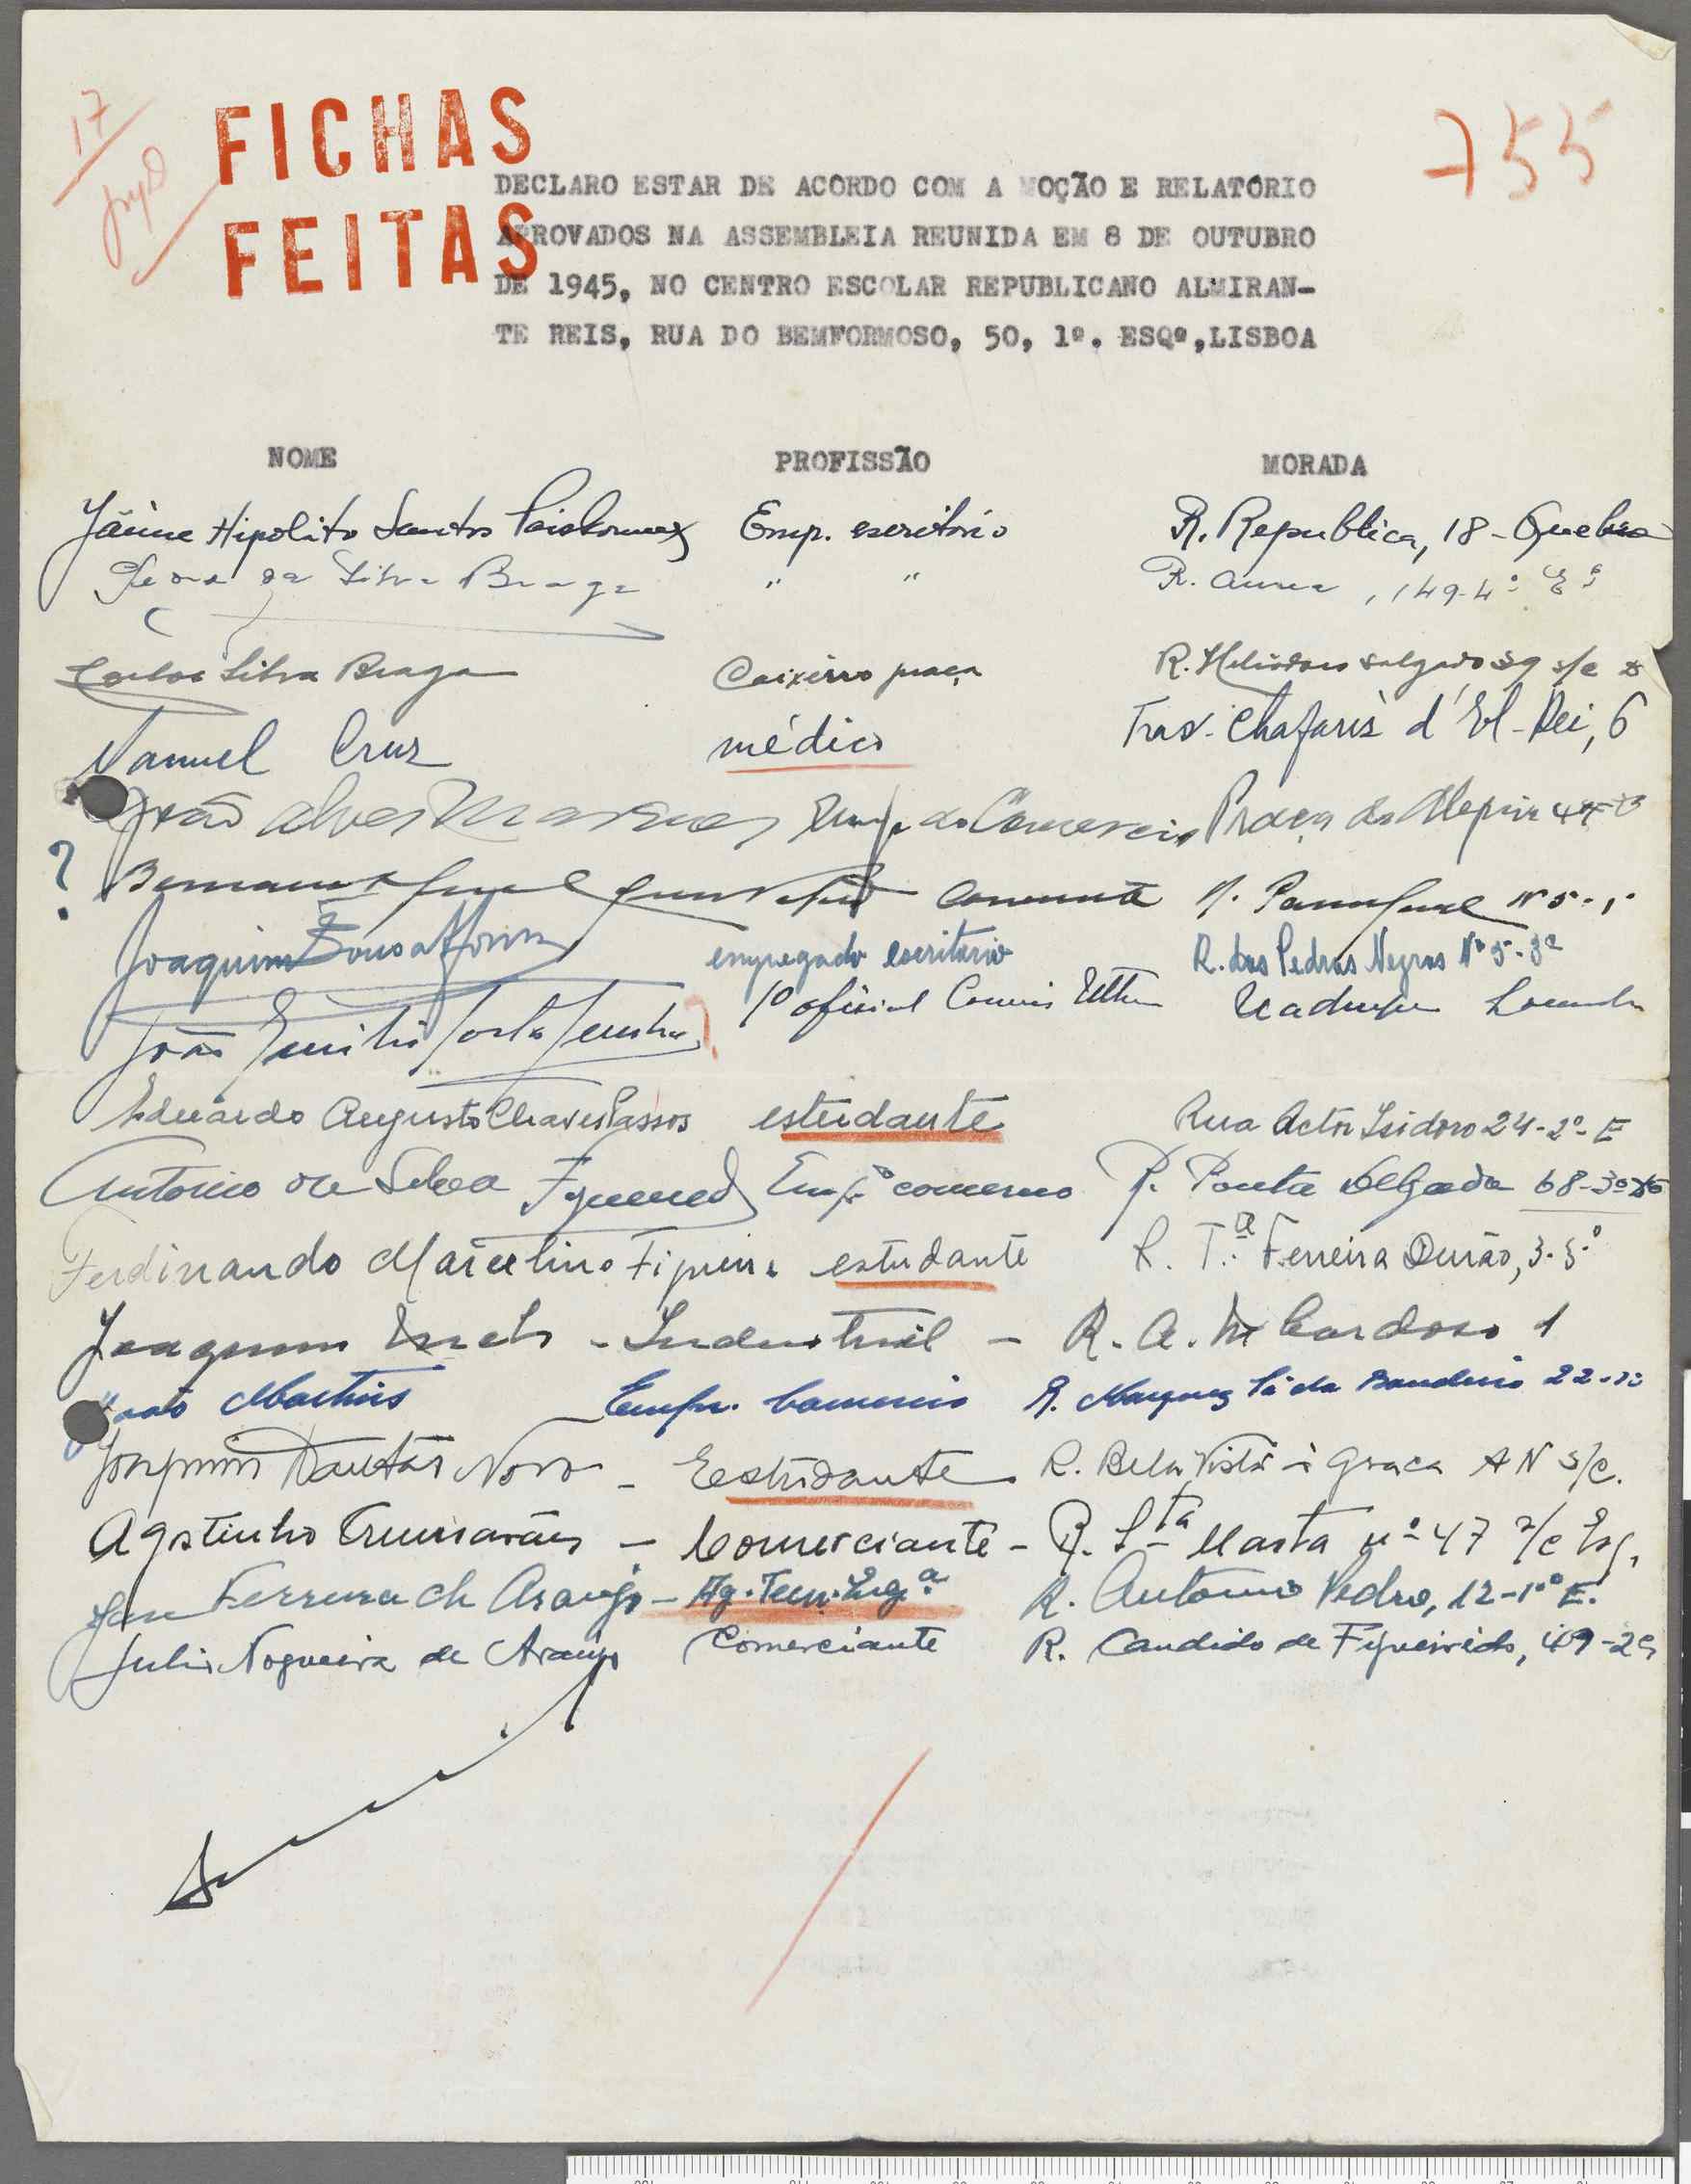 17
FICHAS
FEITAS
755
DECLARO ESTAR DE ACORDO COM A MOÇÃO E RELATÓRIO
APROVADOS NA ASSEMBLEIA REUNIDA EM 8 DE OUTUBRO
DE 1945, NO CENTRO ESCOLAR REPUBLICANO ALMIRAN-
TE REIS, RUA DO BEMFORMOSO, 50, 1º. ESQº, LISBOA
NOME PROFISSÃO MORADA
Jaime Hipolito Santos Emp. escritório R. Republica, 18 -
da Silva Braga " " R. Aurea, 149-4º Eº
Carlos Silva Braga Caixeiro praça R. Heliodoro Salgado 39 r/c
Manuel Cruz médico Trav. Chafariz d'El-Rei, 6
João Alves Empº do Comercio Praça da Alegria
?
Nº 5-1º
Joaquim Sousa empregado escritório R. das Pedras Negras Nº 5-3º
João Emilio Costa 1º oficial
Eduardo Augusto Chaves Passos estudante Rua Actor Isidoro 24-2º-E
Antonio da Silva Empº comercio R. Ponta Delgada 68-3º Dto
Ferdinando Marcelino Figueira estudante R. T.ª Ferreira Durão, 3-3.º
Joaquim - Industrial - R. A. M. Cardoso 1
João Martins Empr. Comercio R. Marquez Sá da Bandeira 22
Joaquim Dantas Novo - Estudante R. Bela Vista à Graça A N r/c.
Agostinho Guimarães - Comerciante - R. Sta Marta nº 47 r/c Esq.
Ferreira de Araujo - Ag. Tecn. Eng.ª R. Antonio Pedro, 12-1º E.
Julio Nogueira de Araujo Comerciante R. Candido de Figueiredo, 49-2º